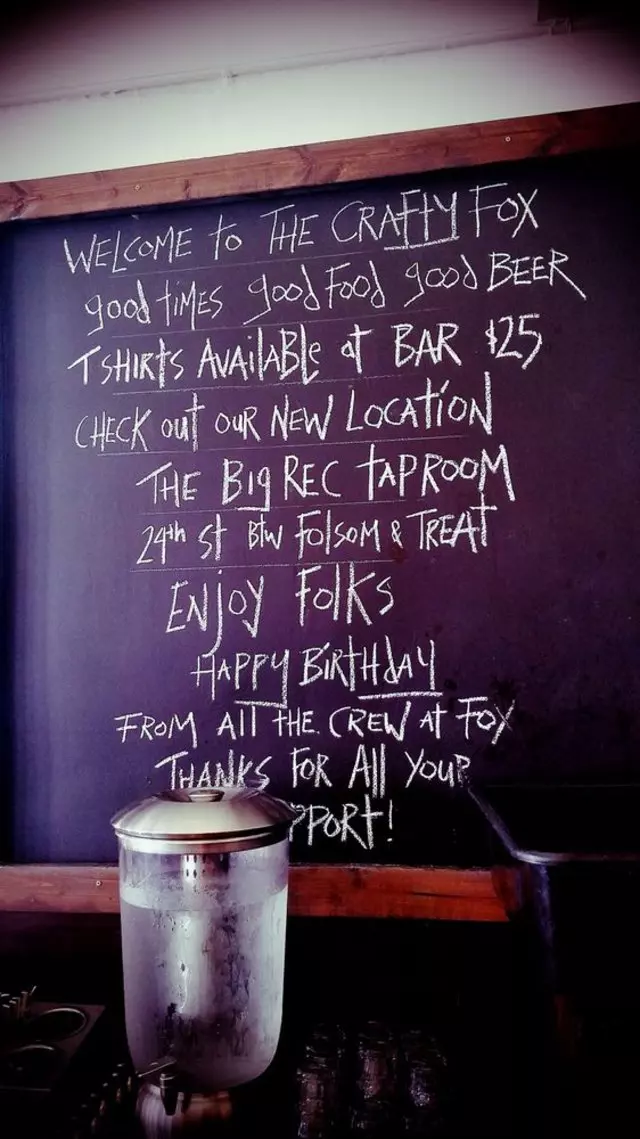 WELCOME to THE CRAFTY FOX
good tIMES good Food good BEER
TSHIRTS AVAILABLE at BAR $25
CHECK out OUR NEW LOCATION
THE Big REC tAPROOM
24th st Btw FolsoM & TREAT
ENJOY FolKS
HAPPY BIRTHDAY
FROM All THE CREW At FOX
THANKS FOR All YOUR
PPORT!